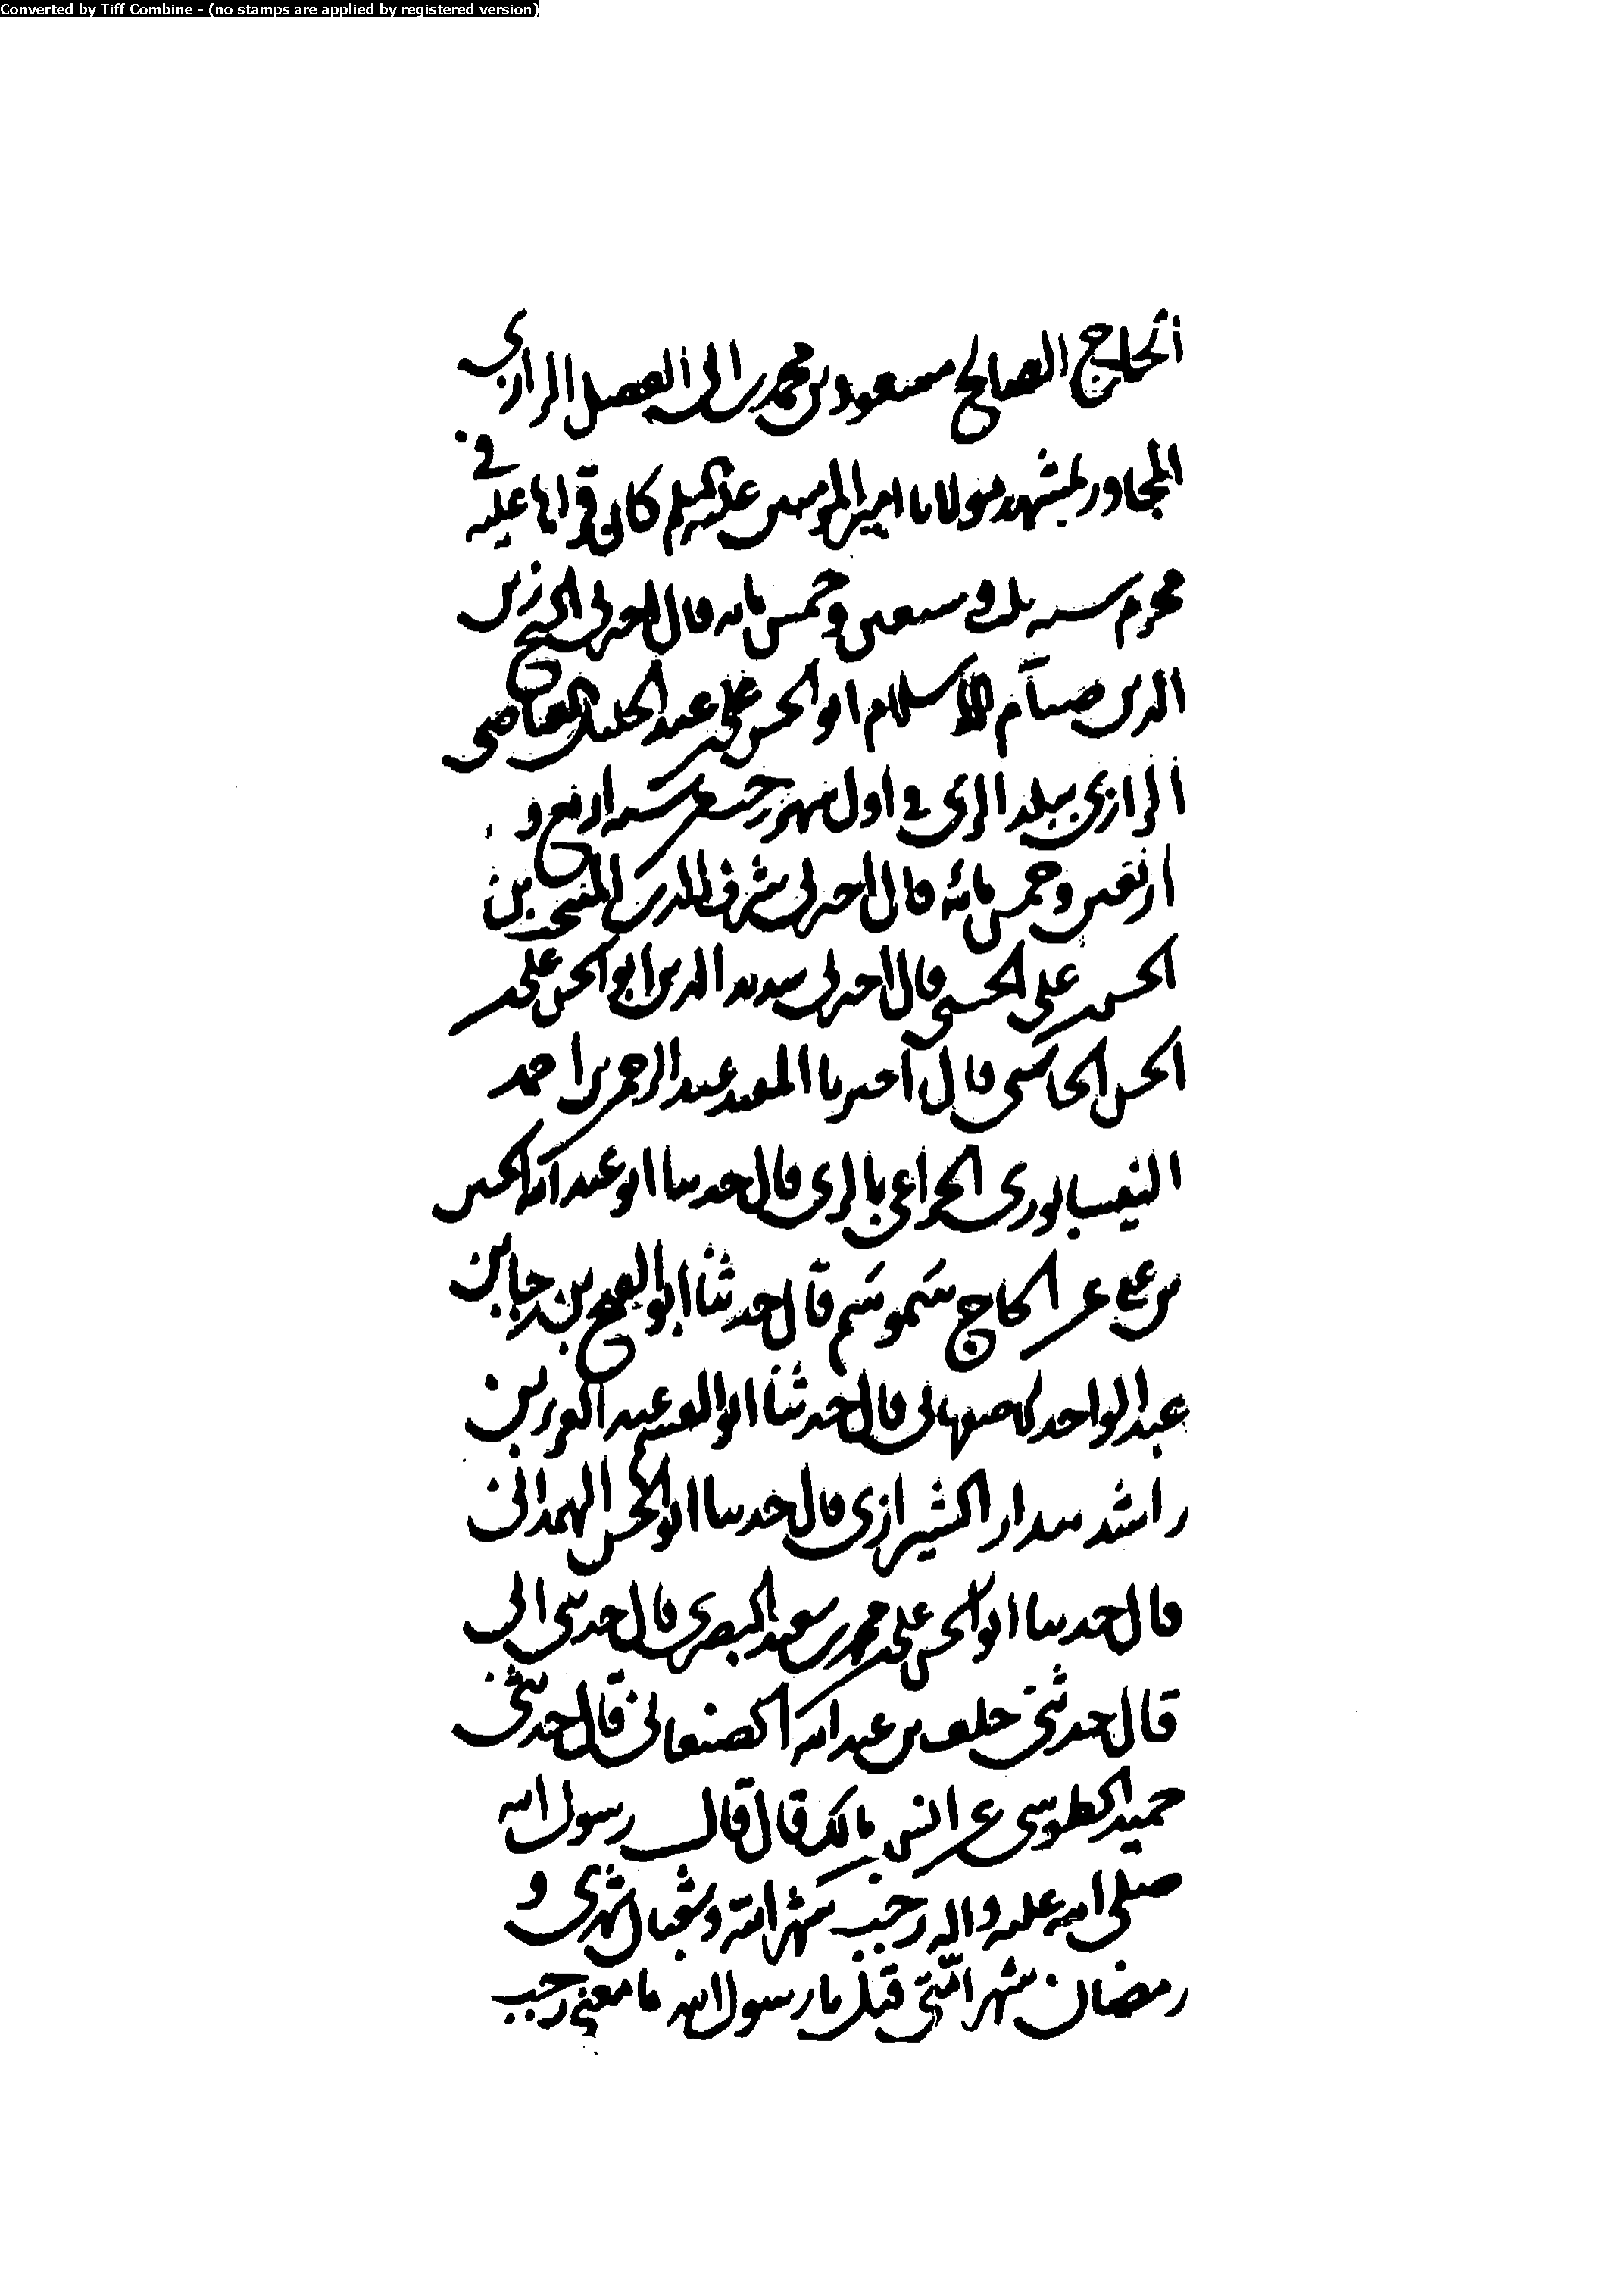 Converted by Tiff Combine - (no stamps are applied by registered version)
الحاج الصالح مسعود بن محمد بن ابى الفضل الرازى
المجاور بمشهد مولانا امير المومنين عليه السلم كان قراها عليه فى
محرم سنه ثلث وسبعين وخمس مايه قال اخبرنى الشيخ زين
الدين الاسلام ابو الحسن على بن عبد الجليل القاضى
الرازى ببلد الرى فى اول شهر رجب سنه اربع و
اربعين وخمس مائة قال اخبرنى شرف الدين المنتجب بن
الحسن بن على الحسنى قال اخبرنى سديد الدين ابو الحسن على بن
الحسن الجاسبى قال اخبرنا المفيد عبد الرحمن بن احمد
النيسابورى الخزاعى بالرى قال حدثنا ابو عبد الله الحسين
بن على عمر الحاج قال حدثنا ابو الفتح بن رجا بن
عبد الواحد الاصفهانى قال حدثنا ابو القسم عبد العزيز بن
راشد بندار الشيرازى قال حدثنا ابو الحسن الهمدانى
قال حدثنا ابو الحسن على بن محمد بن سعيد البصرى قال حدثنى ابى
قال حدثنى خلف بن عبد الله الصنعانى قال حدثنى
حميد الطوسى عن انس بن مالك قال قال رسول الله
صلى الله عليه واله رجب شهر الله وشعبان شهرى و
رمضان شهر امتى قيل يا رسول الله ما معنى رجب